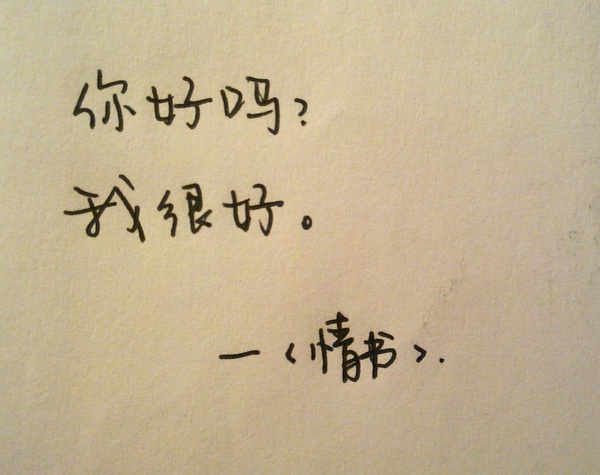 你好吗？
我很好。
—〈情书〉.